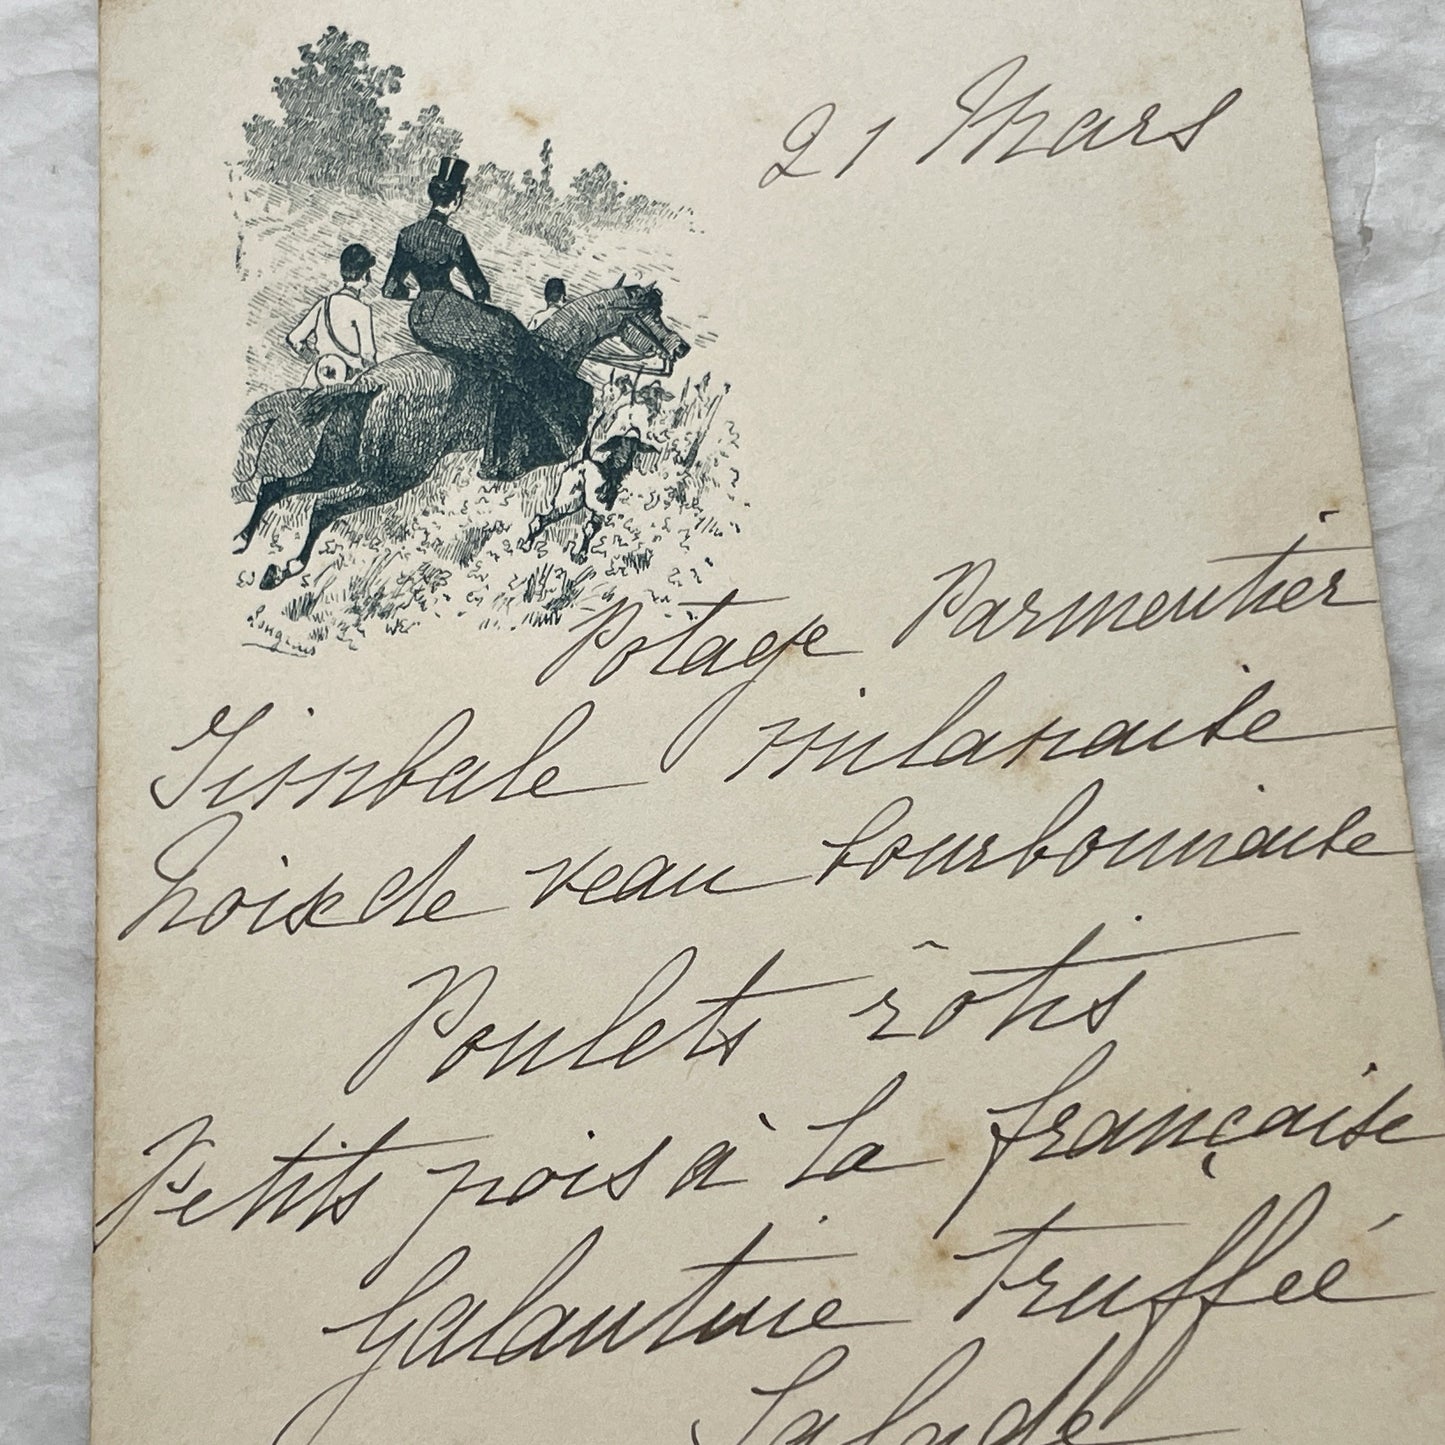 21 Mars
Potage Parmentier
Timbale milanaise
Noix de veau bourbonnaise
Poulets rôtis
Petits pois à la française
Galantine truffée
Salade